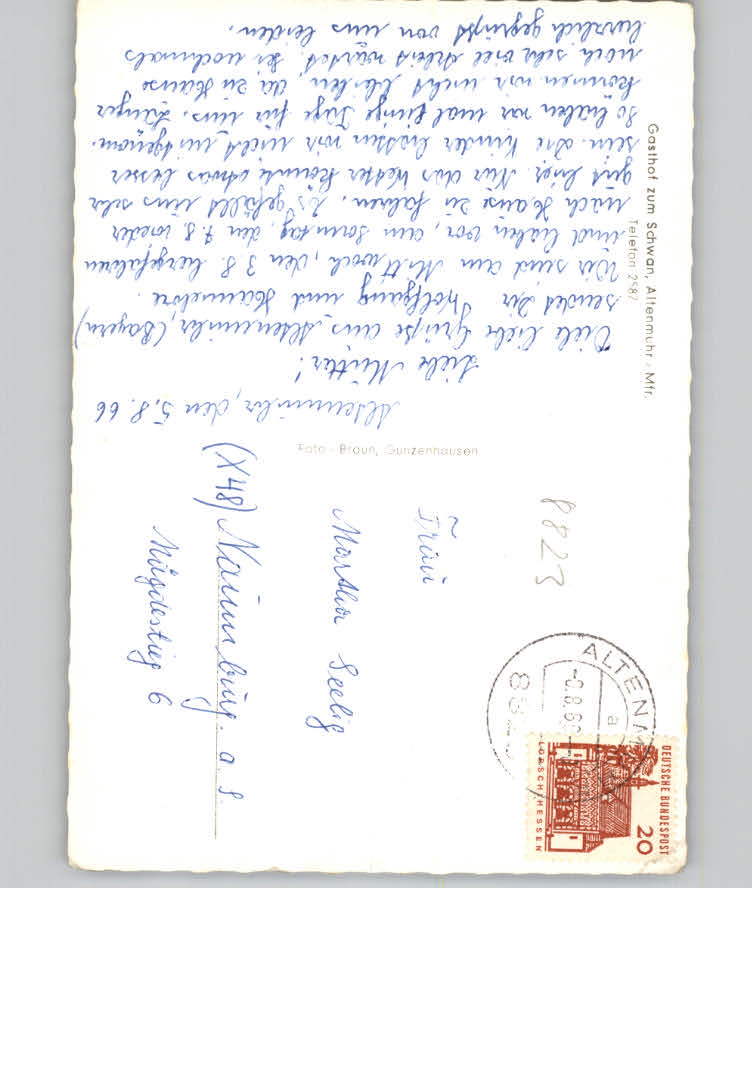 Gasthof zum Schwan, Altenmuhr / Mfr.
Telefon 2587
Altenmuhr, den 5.8.66
Liebe Mutter!
Viele liebe Grüße aus Altenmuhr, (Bayern)
sendet Dir Wolfgang und Hannelore.
Wir sind am Mittwoch, den 3.8. hergefahren
und haben vor, am Sonntag, den 7.8. wieder
nach Hause zu fahren. Es gefällt uns sehr
gut hier. Nur das Wetter könnte etwas besser
sein. Die Kinder liessen wir nicht mitgenom.
So haben wir mal einige Tage für uns. Länger
können wir nicht bleiben, da zu Hause
noch sehr viel Arbeit wartet. Sei nochmals
herzlich gegrüßt von uns beiden.
Foto - Braun, Gunzenhausen
8823
Frau
Martha Seelig
(X48) Naumburg a. S.
Mägdestieg 6
ALTENM
a
-8.8.66
DEUTSCHE BUNDESPOST
20
LORSCH/HESSEN